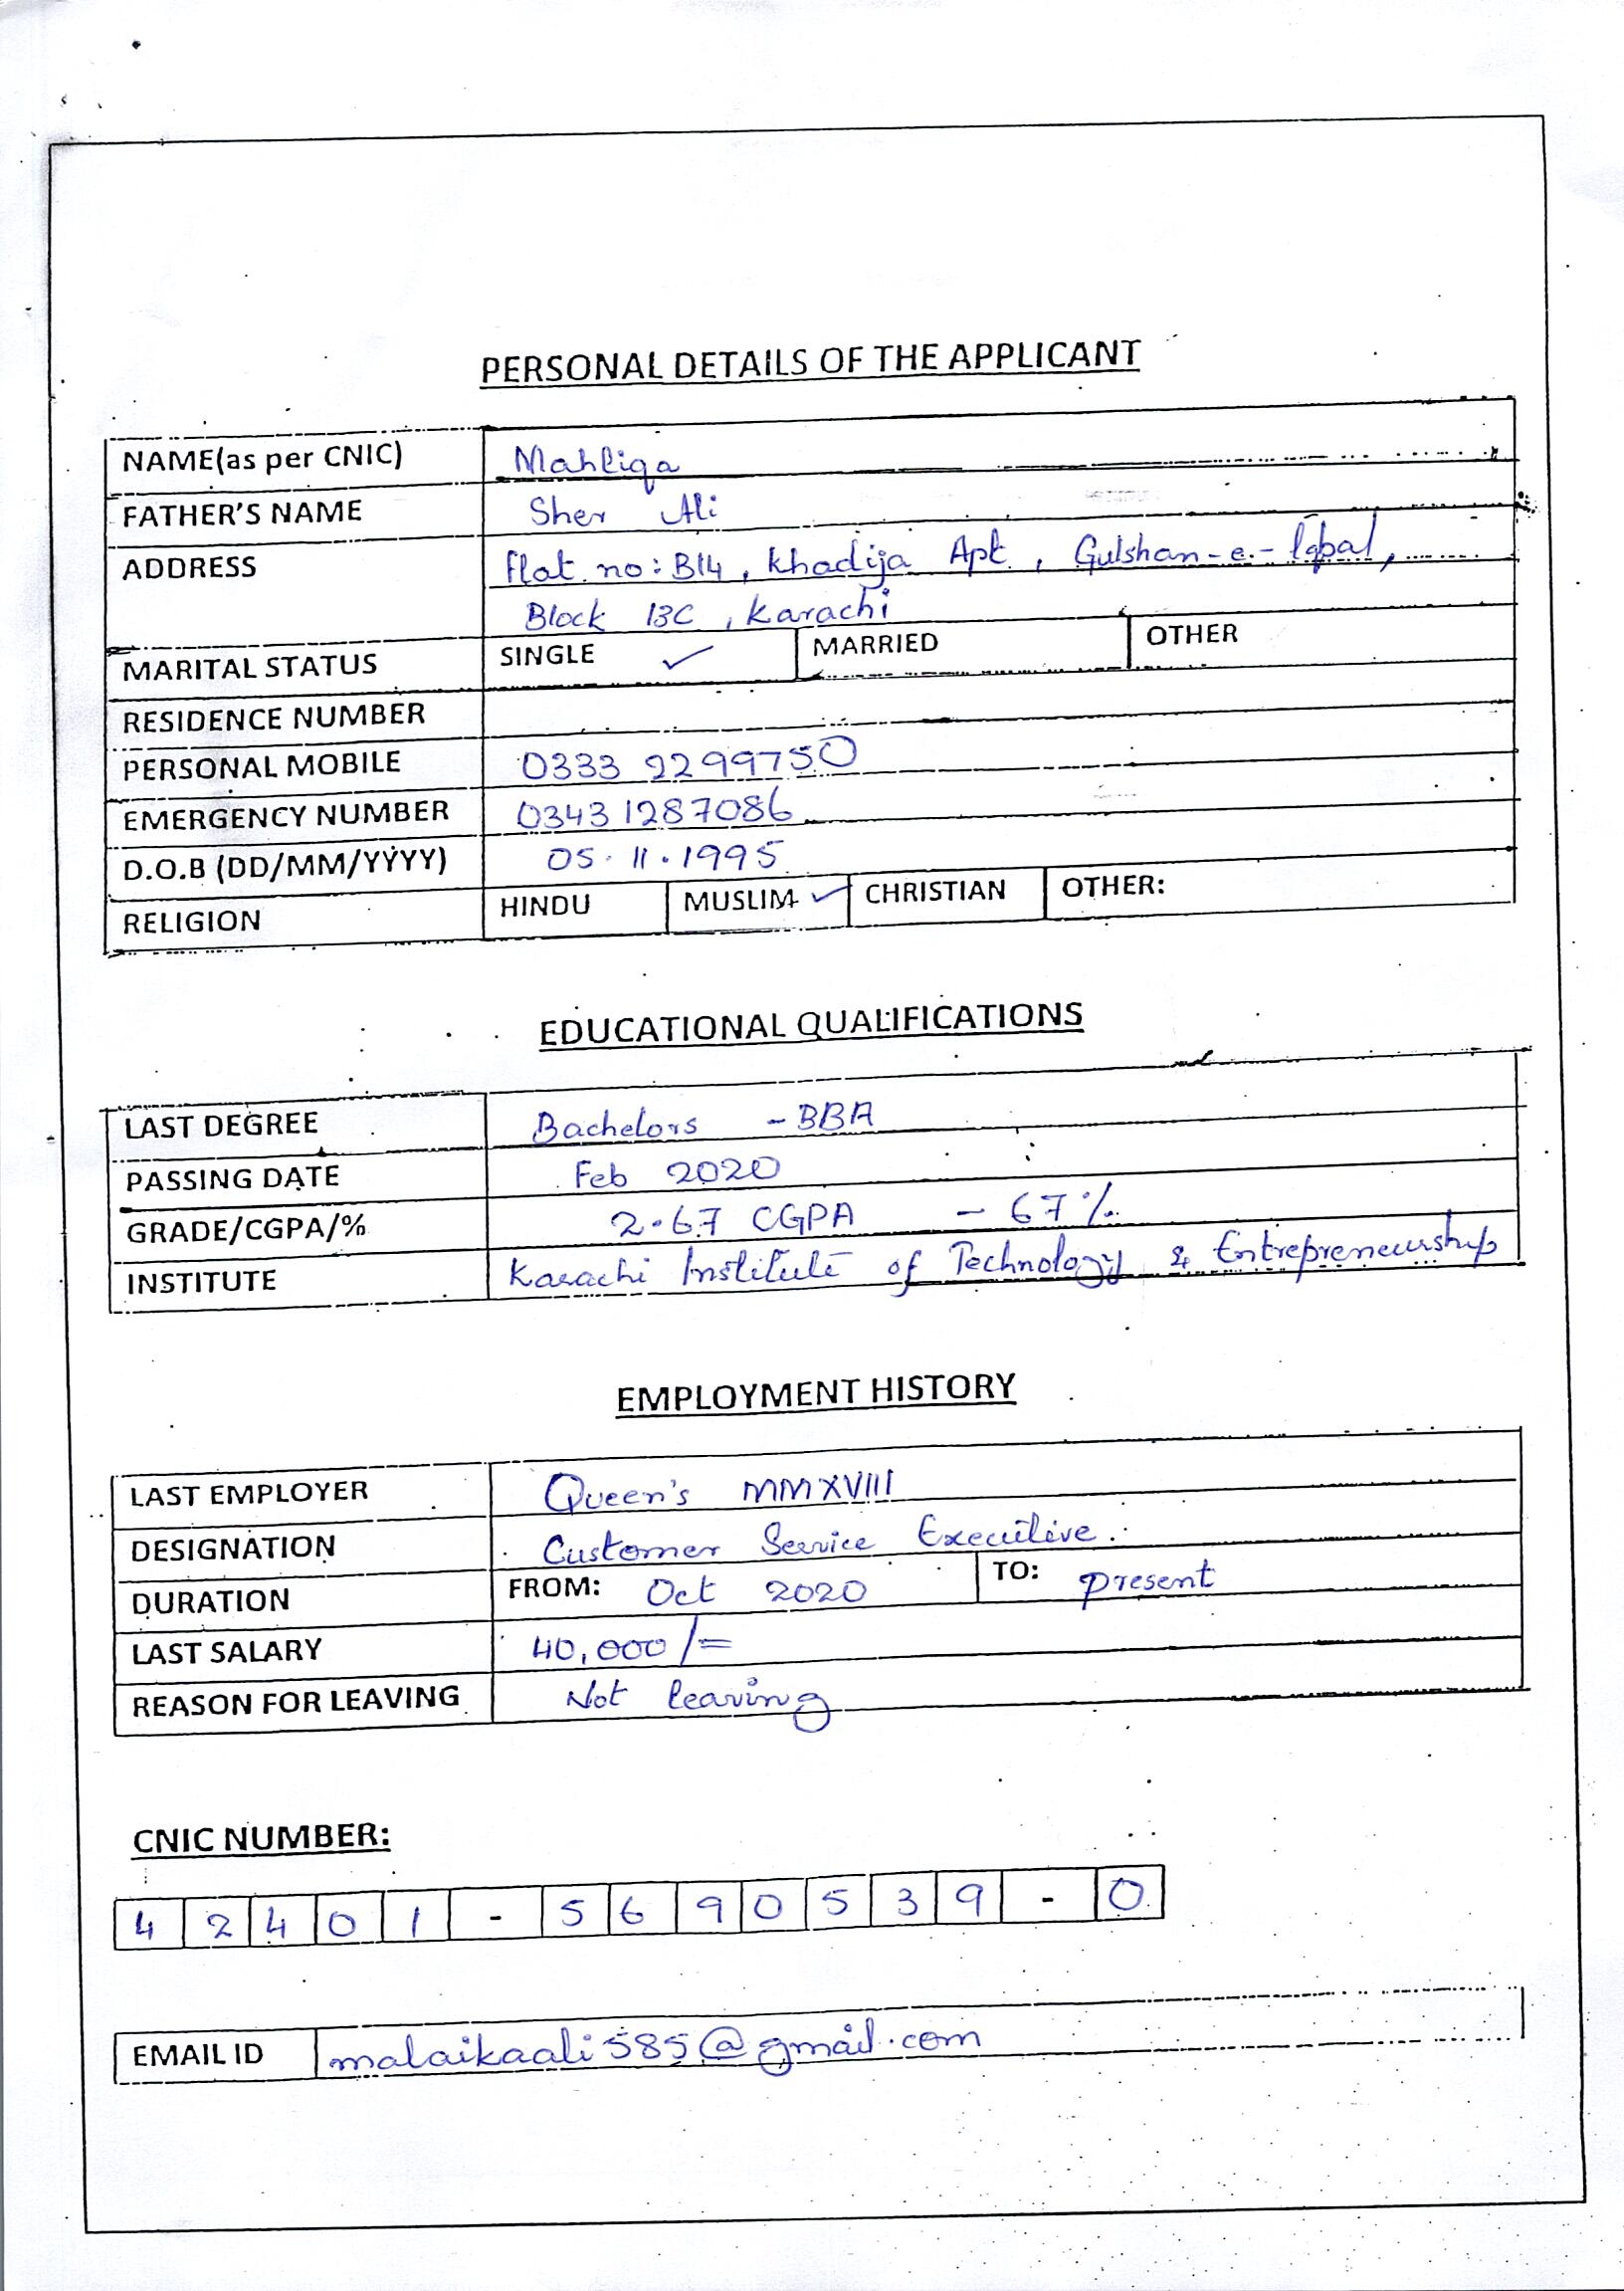 PERSONAL DETAILS OF THE APPLICANT
NAME(as per CNIC) Mahliqa
FATHER'S NAME Sher Ali
ADDRESS Flat no: B14, Khadija Apt, Gulshan-e-Iqbal,
Block 13C, Karachi
MARITAL STATUS SINGLE ✓ MARRIED OTHER
RESIDENCE NUMBER
PERSONAL MOBILE 0333 2299750
EMERGENCY NUMBER 03431287086
D.O.B (DD/MM/YYYY) 05.11.1995
RELIGION HINDU MUSLIM ✓ CHRISTIAN OTHER:
EDUCATIONAL QUALIFICATIONS
LAST DEGREE Bachelors - BBA
PASSING DATE Feb 2020
GRADE/CGPA/% 2.67 CGPA - 67%
INSTITUTE Karachi Institute of Technology & Entrepreneurship
EMPLOYMENT HISTORY
LAST EMPLOYER Queen's MMXVIII
DESIGNATION Customer Service Executive.
DURATION FROM: Oct 2020 TO: present
LAST SALARY 40,000/=
REASON FOR LEAVING Not leaving
CNIC NUMBER:
42401-5690539-0
EMAIL ID malaikaali585@gmail.com